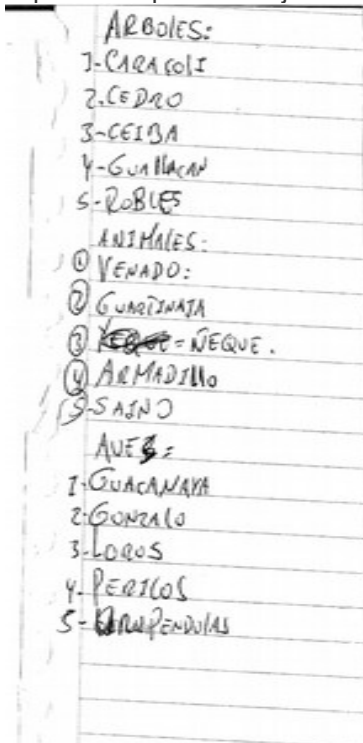 ARBOLES:
1-CARACOLI
2.CEDRO
3-CEIBA
4-GUALLACAN
5-ROBLES
ANIMALES:
① VENADO:
② GUARTINAJA
③ = ÑEQUE.
④ ARMADILLO
5-SAINO
AVES:
1-GUACANAYA
2-GONZALO
3-LOROS
4-PERICOS
5-ORUPENDULAS